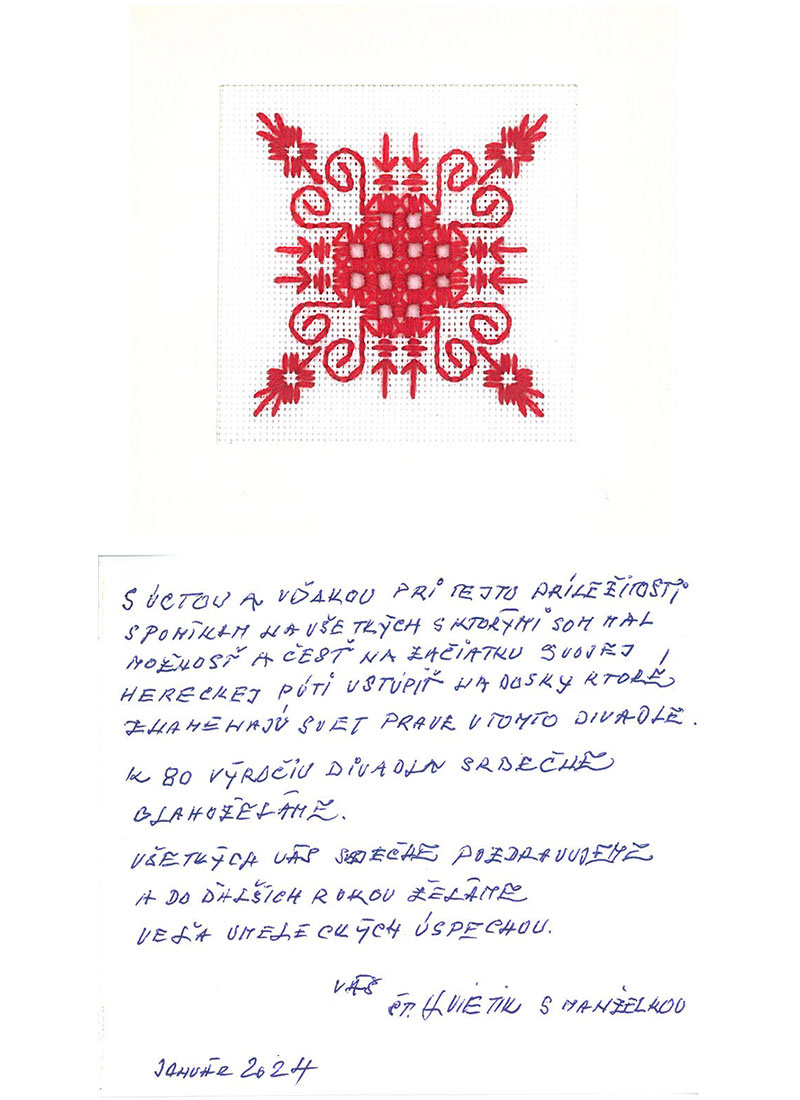 S ÚCTOU A VĎAKOU PRI TEJTO PRÍLEŽITOSTI
SPOMÍNAM NA VŠETKÝCH S KTORÝMI SOM MAL
MOŽNOSŤ A ČESŤ NA ZAČIATKU SVOJEJ
HERECKEJ PÚTI VSTÚPIŤ NA DOSKY KTORÉ
ZNAMENAJÚ SVET PRAVE V TOMTO DIVADLE.
K 80 VÝROČIU DIVADLA SRDEČNE
BLAHOŽELÁME.
VŠETKÝCH VÁS SRDEČNE POZDRAVUJEME
A DO ĎALŠÍCH ROKOV ŽELÁME
VEĽA UMELECKÝCH ÚSPECHOV.
VÁŠ
ŠT. KVIETIK S MANŽELKOU
JANUÁR 2024